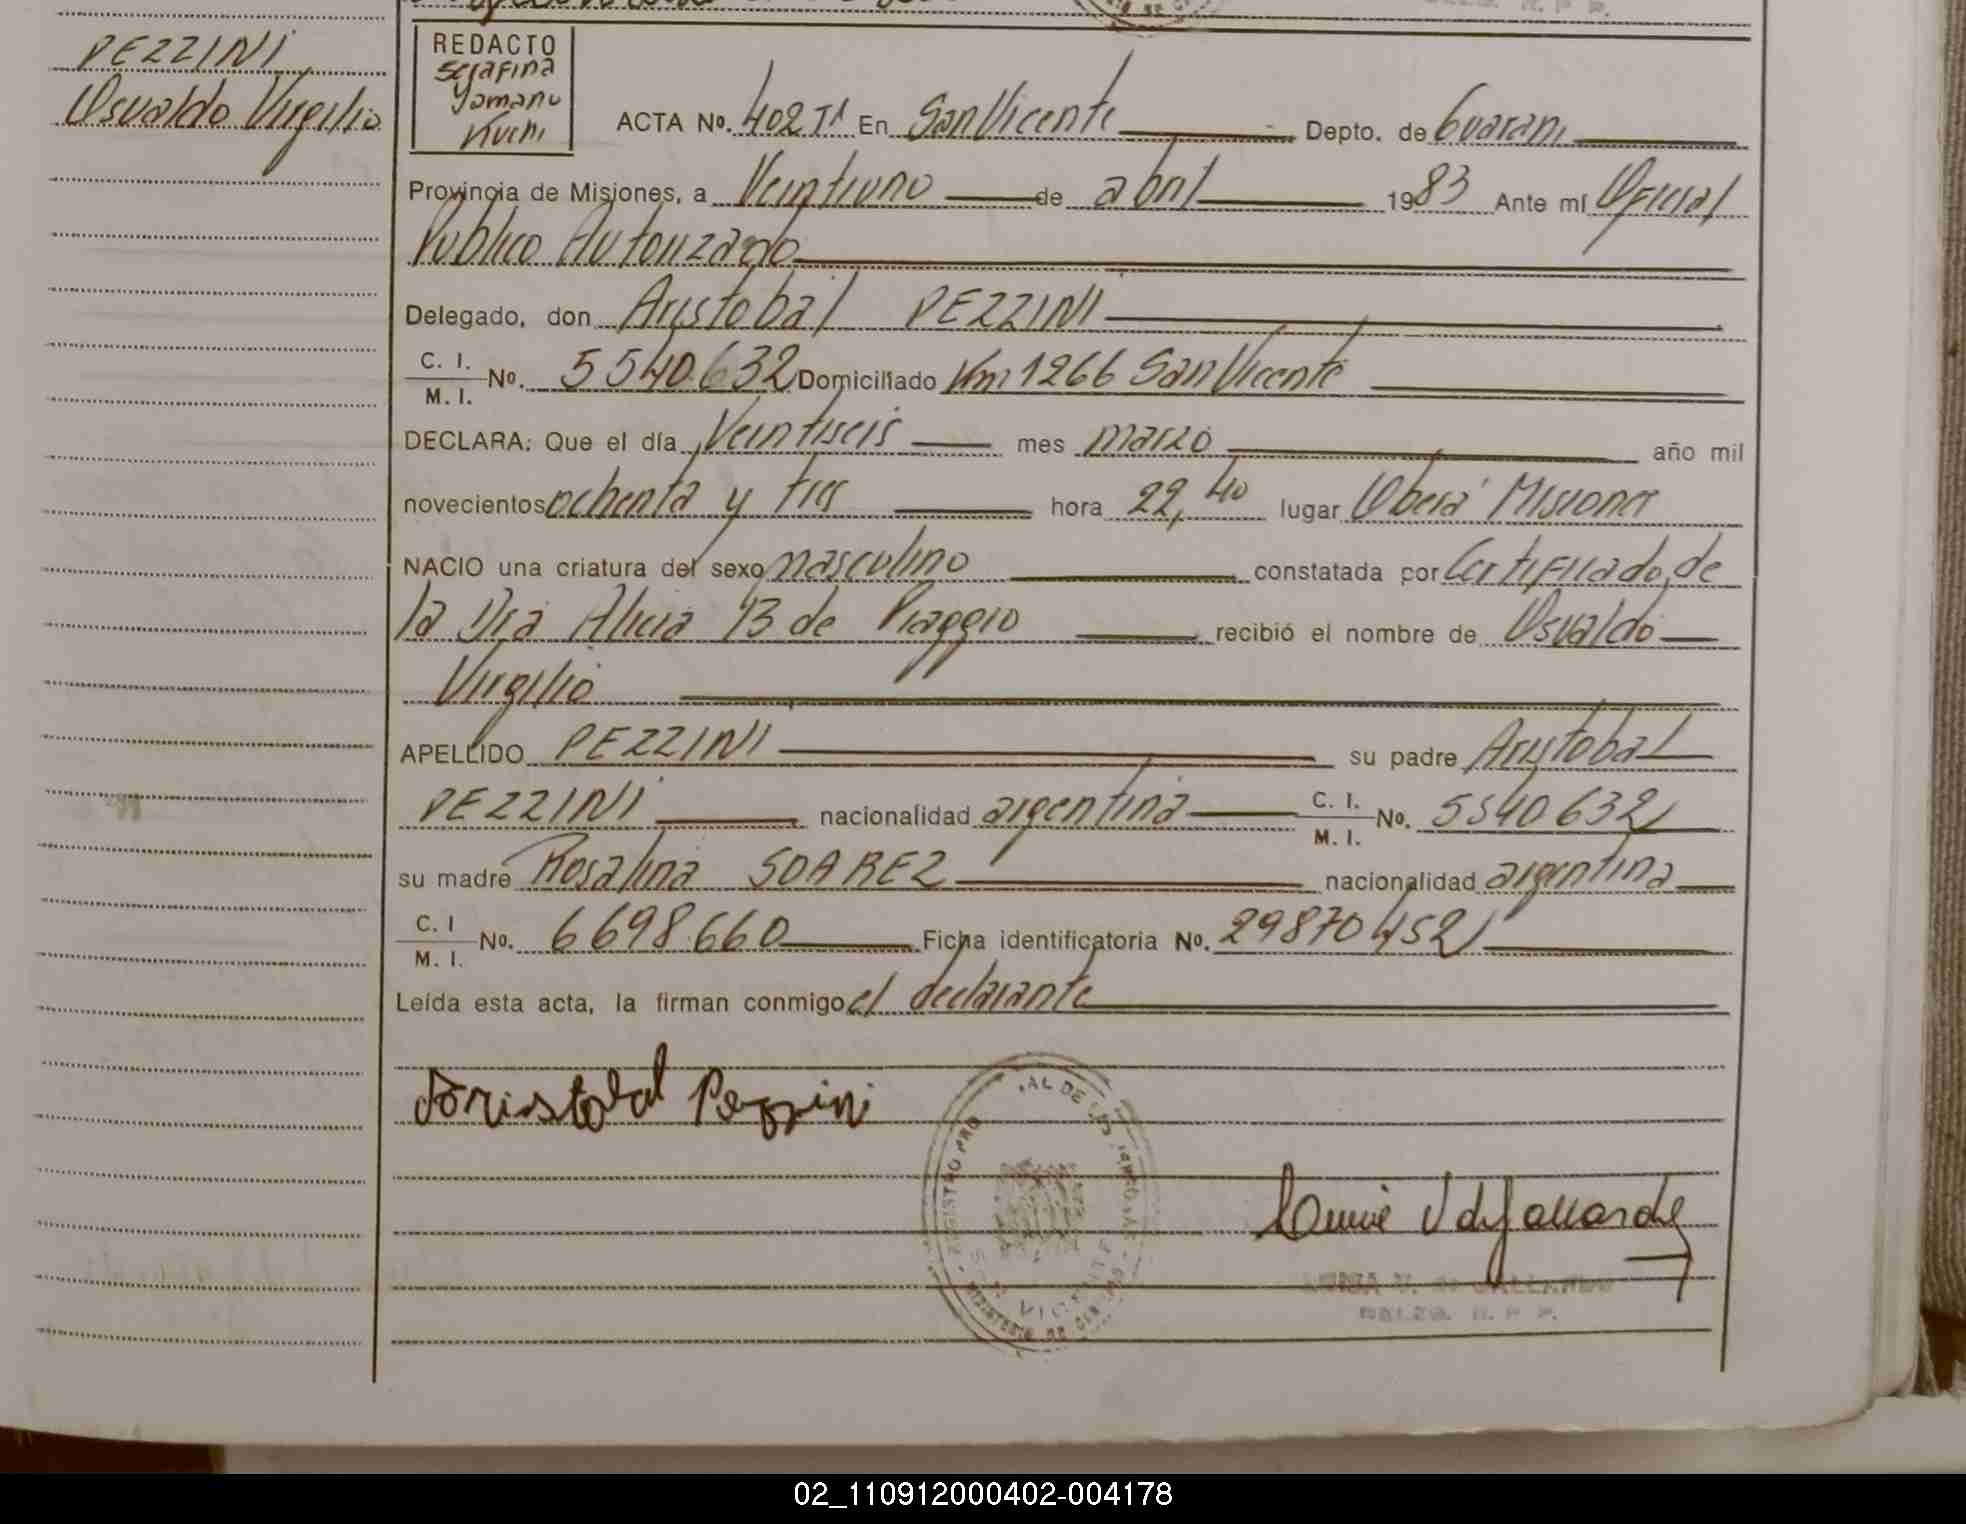 PEZZINI
Osvaldo Virgilio
REDACTO
Serafina
Yamanu
Kuchi
ACTA No. 402 TI En San Vicente Depto. de Guarani
Provincia de Misiones, a Veintiuno de abril 1983 Ante mí Oficial
Publico Autorizado
Delegado, don Aristobal PEZZINI
C. I.
M. I. No. 5540.632 Domiciliado Km 1266 San Vicente
DECLARA: Que el día Veintiseis mes marzo año mil
novecientos ochenta y tres hora 22,40 lugar Oberá Misiones
NACIO una criatura del sexo masculino constatada por Certificado de
la Dra Alicia B de Piaggio recibió el nombre de Osvaldo
Virgilio
APELLIDO PEZZINI su padre Aristobal
PEZZINI nacionalidad argentina C. I.
M. I. No. 5540632
su madre Rosalina SOAREZ nacionalidad argentina
C. I
M. I. No. 6698.660 Ficha identificatoria No. 29870452
Leída esta acta, la firman conmigo el declarante
Aristobal Pezzini
REGISTRO PRO AL DE LAS PERSONAS
VICENTE
MINISTERIO DE
DE GALLARDO
DELEG. R. P. P.
02_110912000402-004178